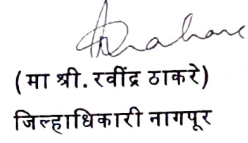 (मा श्री. रवींद्र ठाकरे)
जिल्हाधिकारी नागपूर